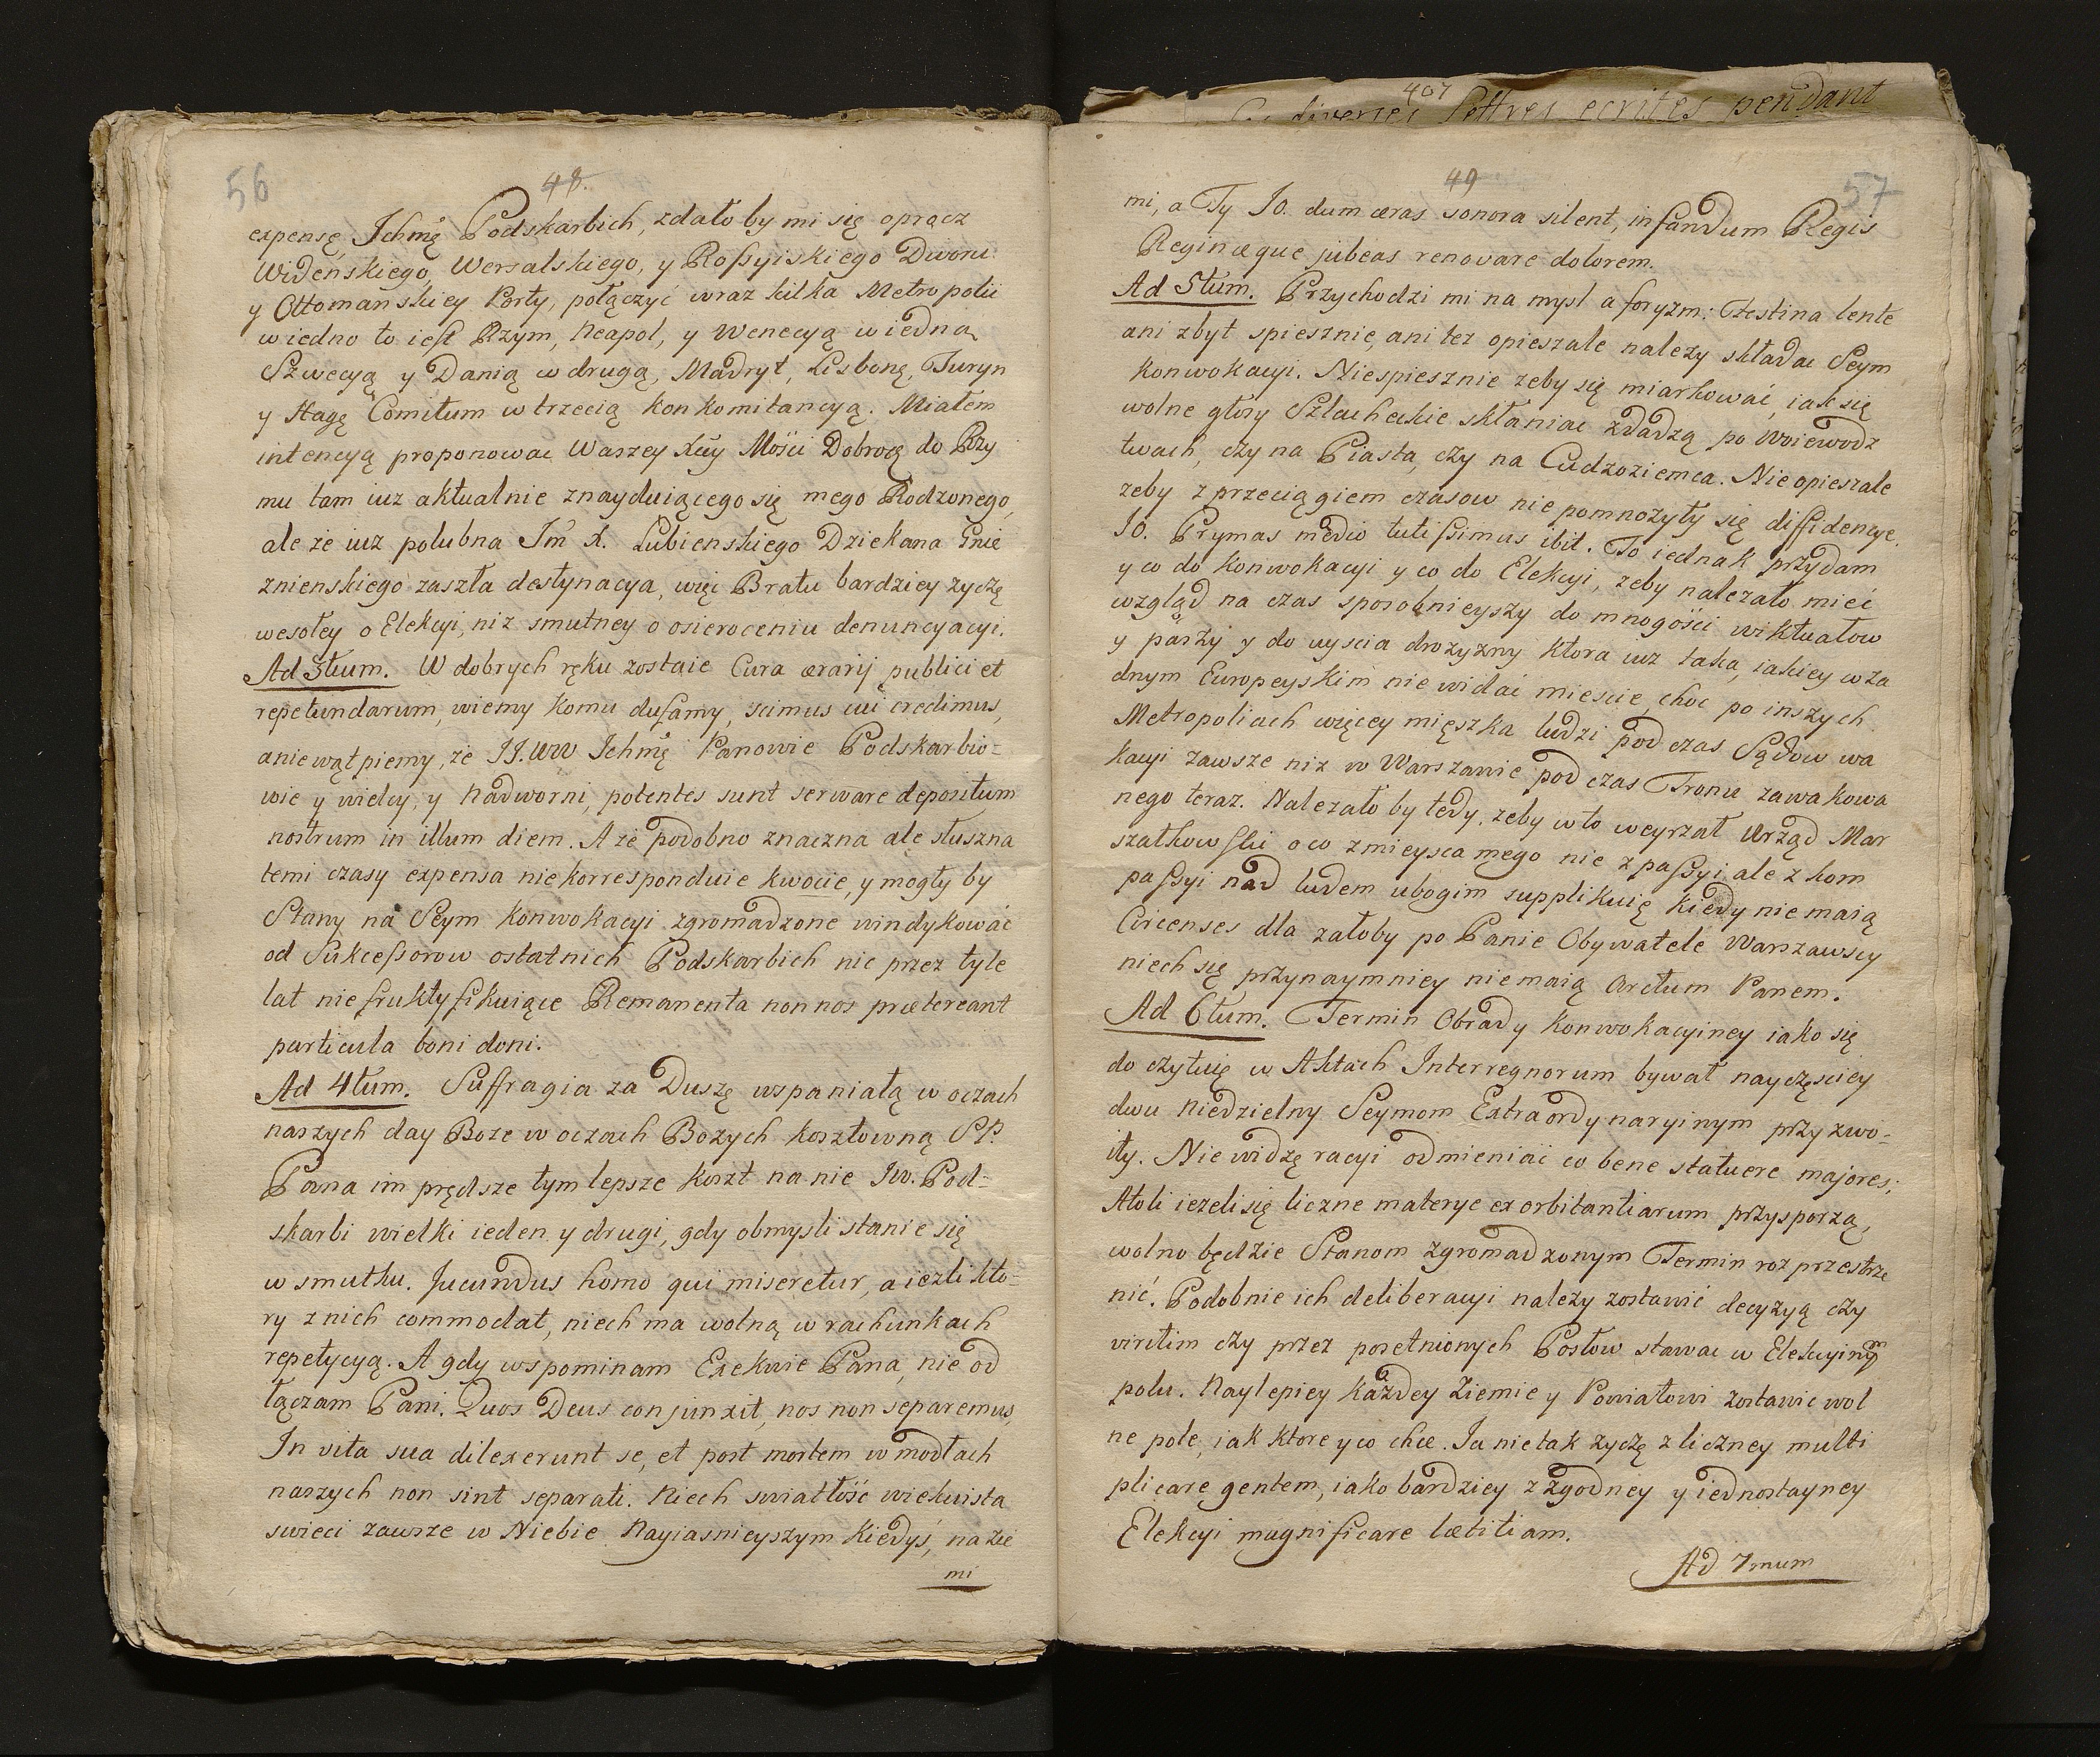 56
48.
expensę Ichmę Podskarbich, zdałoby mi się oprącz
Widenskiego, Wersalskiego, y Rossyiskiego Dworu
y Ottomanskiey Porty, połączyć wraz kilka Metropolii
wiedno to iest Rzym, Neapol, y Wenecyą wiedną
Szwecyą y Danią w drugą, Madryt, Lisbonę, Turyn
y Hagę Comitum w trzecią konkomitancyą. Miałem
intencyą proponowac Waszey Xcey Mości Dobrocą do Rzy
mu tam iuz aktualnie znayduiącego się mego Rodzonego,
ale ze iuz polubna Jm X. Lubienskiego Dziekana Gnie
znienskiego zaszła destynacya, więc Bratu bardziey zyczę
wesołey o Elekcyi, niz smutney o osieroceniu denuncyacyi.
Ad 3tium. W dobrych ręku zostaie Cura ærarij publici et
repetundarum, wiemy komu dufamy, scimus cui credimus,
aniewątpiemy, ze JJ.WW Ichmę Panowie Podskarbio=
wie y wielcy, y Nadworni, potentes sunt serware depositum
nostrum in illum diem. A ze podobno znaczna ale słuszna
temi czasy expensa niekorresponduie kwocie, y mogły by
Stany na Seym Konwokacyi zgromadzone windykować
od Sukcessorow ostatnich Podskarbich nic przez tyle
lat nie fruktyfikuiące Remanenta non nos prætereant
particula boni doni.
Ad 4tum. Suffragia za Duszę wspaniałą w oczach
naszych day Boze w oczach Bozych kosztowną SP.
Pana im prędsze tym lepsze koszt na nie Jw. Pod=
skarbi wielki ieden y drugi, gdy obmysli stanie się
w smutku. Jucundus homo qui miseretur, a iezli kto=
ry z nich commodat, niech ma wolną w rachunkach
repetycyą. A gdy wspominam Exekwie Pana, nie od
łączam Pani. Quos Deus conjunxit, nos non separemus,
In vita sua dilexerunt se, et post mortem w modłach
naszych non sint separati. Niech swiatłość wiekuista
swieci zawsze w Niebie Nayiasnieyszym kiedyś, na zie
mi
407
diverses lettres ecrites pendant
49
57
mi, a Ty Jo. dum æras sonora silent, infandum Regis
Reginæque jubeas renovare dolorem.
Ad 5tum. Przychodzi mi na mysl aforyzm: Festina lente
ani zbyt spiesznie, ani tez opieszale nalezy składac Seym
Konwokacyi. Niespiesznie zeby się miarkować, iak się
wolne głosy Szlacheckie skłaniac zdadzą po Woiewodz
twach, czy na Piasta, czy na Cudzoziemca. Nie opieszale
zeby z przeciągiem czasow nie pomnozyły się diffidencye.
Jo. Prymas medio tutissimus ibit. To iednak przydam
y co do Konwokacyi y co do Elekcyi, zeby nalezało mieć
wzgląd na czas sposobnieyszy do mnogości wiktuałow
y paszy y do uyscia drozyzny ktora iuz taka, iakiey w za
dnym Europeyskim nie widać miescie, choc po inszych
Metropoliach więcey mięszka ludzi pod czas Sądow wa
kacyi zawsze niz w Warszawie pod czas Tronu zawakowa
nego teraz. Nalezało by tedy, zeby w to weyrzał Urząd Mar
szałkowski o co z mieysca mego nie z passyi ale z kom
passyi nad ludem ubogim supplikuię kiedy nie maią
Circenses dla załoby po Panie Obywatele Warszawscy
niech się przynaymniey nie maią Arctum Panem.
Ad 6tum. Termin Obrady Konwokacyiney iako się
do czytuię w Aktach Interregnorum bywał nayczęsciey
dwu Niedzielny Seymom Extraordynaryinym przyzwo=
ity. Nie widzę racyi odmieniać co bene statuere majores;
Atoli iezeli się liczne materye exorbitantiarum przysporzą,
wolno będzie Stanom zgromadzonym Termin rozprzestrze
nić. Podobnie ich deliberacyi nalezy zostawić decyzyą czy
viritim czy przez posełnionych Posłow stawac w Elekcyinym
polu. Naylepiey Kazdey Ziemie y Powiatowi zostawic wol
ne pole, iak ktore y co chce. Ja nie tak zyczę z liczney multi
plicare gentem, iako bardziey z zgodney y iednostayney
Elekcyi magnificare lætitiam.
Ad 7mum